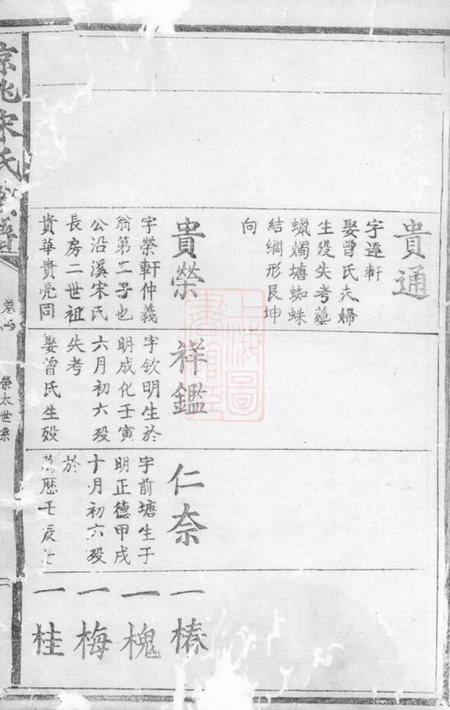 貴通
字逵軒
娶曾氏夫婦
生歿失考塟
蠟燭塘蜘蛛
結網形艮坤
向
貴榮
字榮軒仲義
翁第二子也
公沿溪宋氏
長房二世祖
貴華貴亮同
祥鑑
字欽明生於
明成化壬寅
六月初六歿
失考
娶曾氏生歿
仁奈
字前塘生于
明正德甲戌
十月初六歿
於
萬歷壬辰七
一椿
一槐
一梅
一桂
京兆宋氏族譜
卷
榮太世系
上海圖書館藏